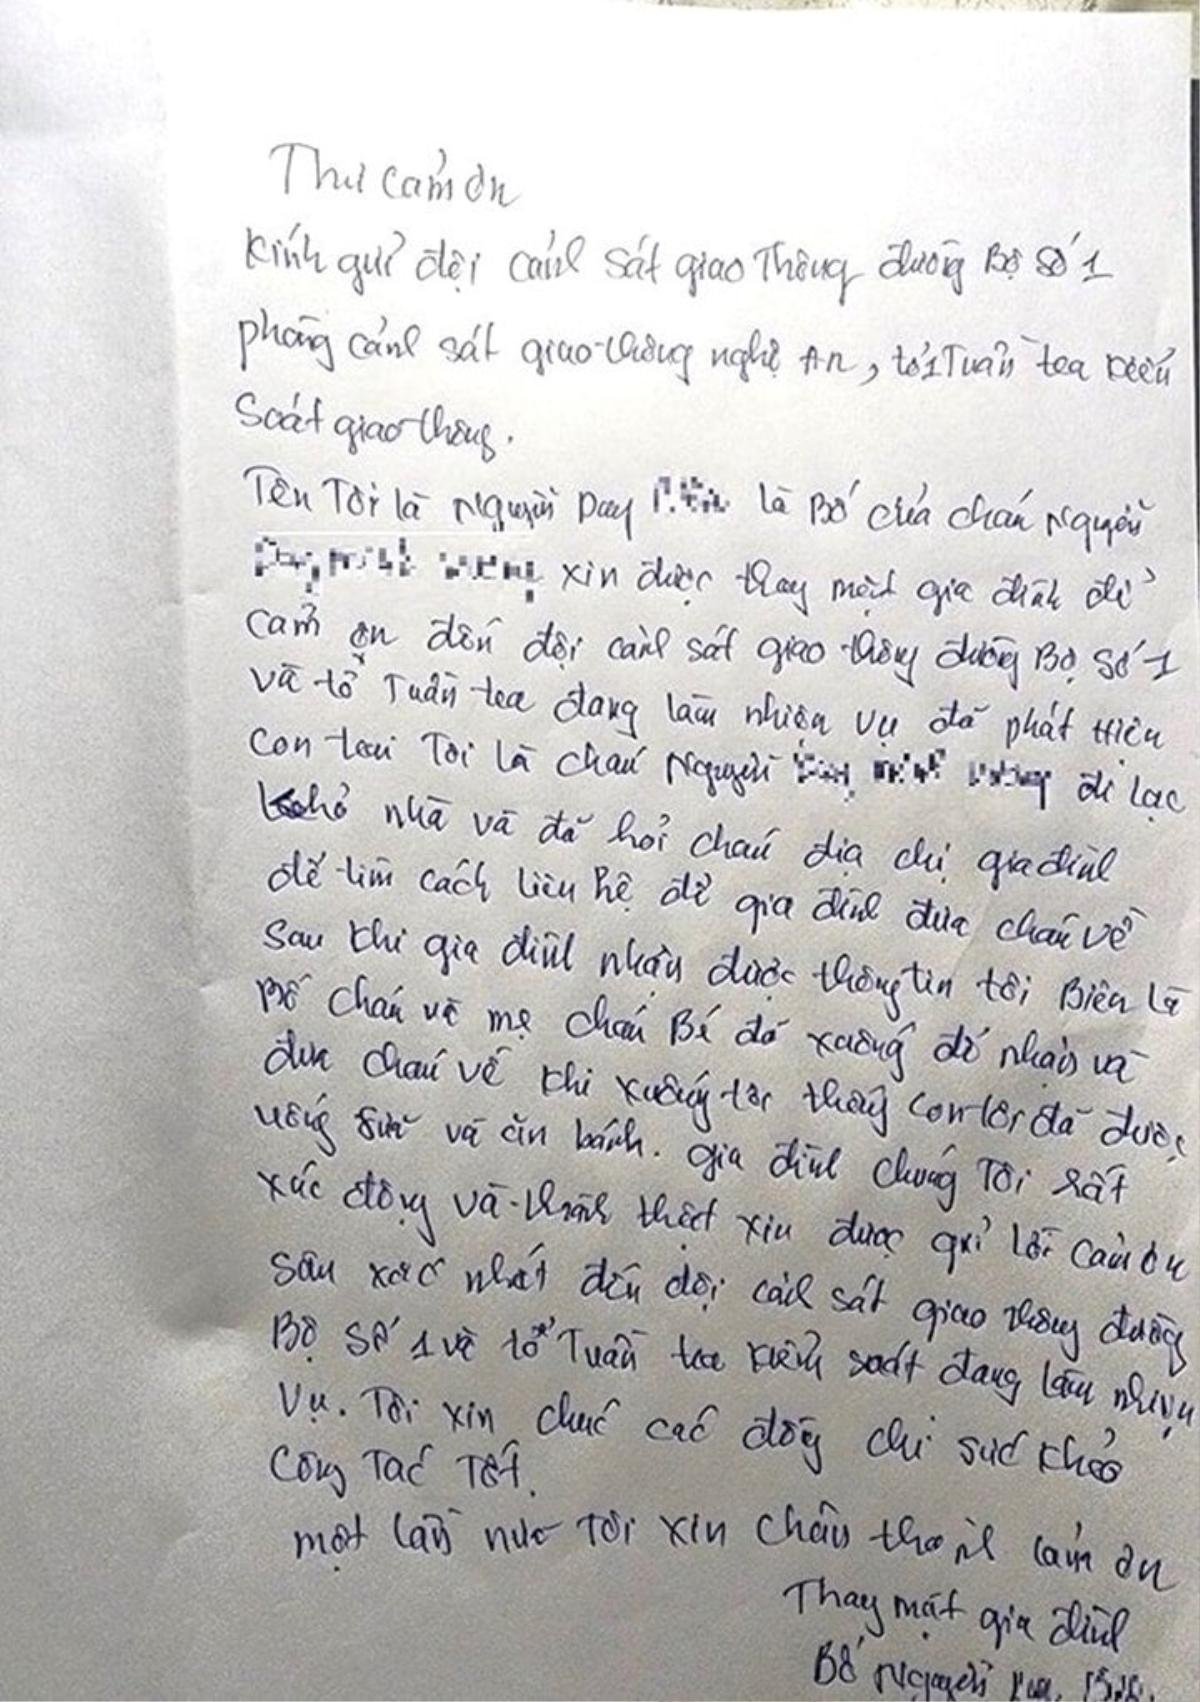 Thư cảm ơn
Kính gửi đội cảnh sát giao Thông đường Bộ Số 1
phòng cảnh sát giao thông nghệ An, tổ 1 Tuần tra kiểm
Soát giao thông.
Tên Tôi là Nguyễn Duy là Bố của cháu Nguyễn
xin được thay mặt gia đình để
cảm ơn đến đội cảnh sát giao thông đường Bộ Số 1
và tổ Tuần tra đang làm nhiệm vụ đã phát Hiện
con trai Tôi là cháu Nguyễn đi lạc
khỏi nhà và đã hỏi cháu địa chỉ gia đình
để tìm cách liên hệ để gia đình đưa cháu về
Sau khi gia đình nhận được thông tin tôi Biên là
Bố cháu và mẹ cháu Bé đã xuống để nhận và
đưa cháu về khi xuống tôi thấy con tôi đã được
uống sữa và ăn bánh. gia đình chúng Tôi rất
xúc động và thành thật xin được gửi lời cảm ơn
sâu xắc nhất đến đội cảnh sát giao thông đường
Bộ Số 1 và tổ Tuần tra kiểm soát đang làm nhiệm
Vụ. Tôi xin chúc các đồng chí sức khỏe
Công Tác Tốt.
một lần nữa Tôi xin chân thành cảm ơn
Thay mặt gia đình
Bố Nguyễn